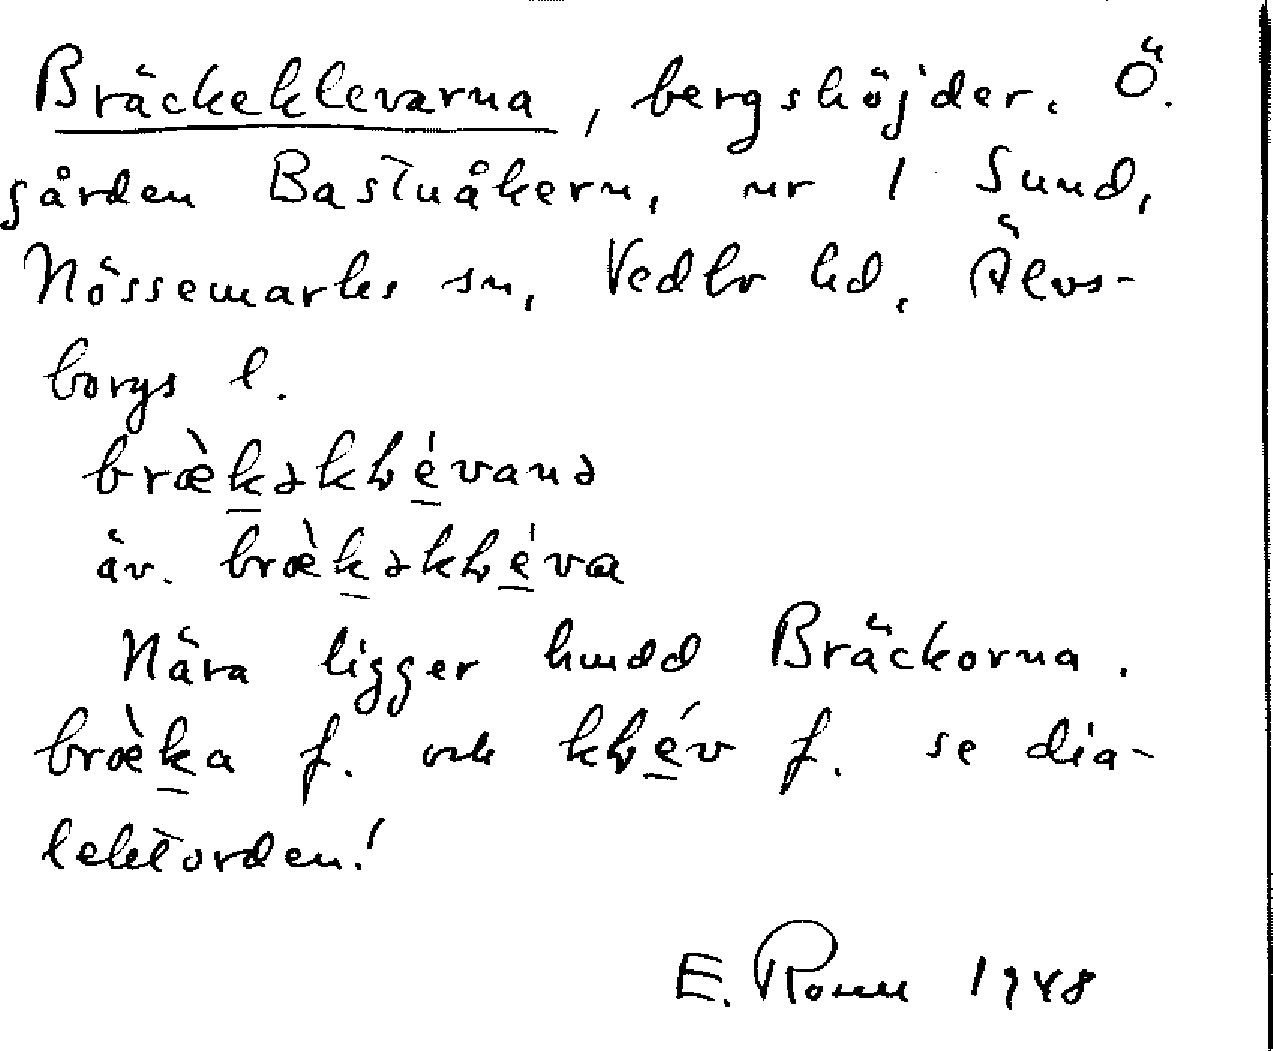 Bräckeklevarna, bergshöjder. Ö.
gården Bastuåkern, nr 1 Sund,
Nössemarks sn, Vedbo hd, Älvs-
borgs l.
bræ̀kəkḷévanə
äv. bræ̀kəkḷéva
Nära ligger hmdd Bräckorna.
bræ̀ka f. och kḷév f. se dia-
lektorden!
E. Romm 1948